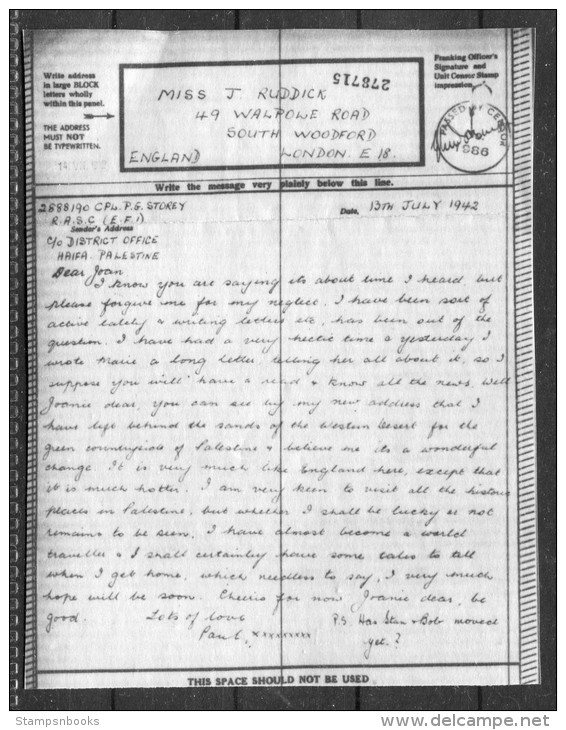 Write address
in large BLOCK
letters wholly
within this panel.
THE ADDRESS
MUST NOT
BE TYPEWRITTEN.
278715
MISS J. RUDDICK
49 WALPOLE ROAD
SOUTH WOODFORD
ENGLAND LONDON. E 18.
Franking Officer's
Signature and
Unit Censor Stamp
impression.
PASSED BY CENSOR
Write the message very plainly below this line.
2888190 CPL. P.G. STOREY
R.A.S.C (E.F.I)
Sender's Address
C/O DISTRICT OFFICE
HAIFA. PALESTINE
Date, 13TH JULY 1942
Dear Joan
I know you are saying its about time I heard, but
please forgive me for my neglect. I have been sort of
active lately & writing letters etc, has been out of the
question. I have had a very hectic time & yesterday I
wrote Marie a long letter, telling her all about it, so I
suppose you will have a read & know all the news. Well
Joanie dear, you can see by my new address that I
have left behind the sands of the Western Desert for the
green countryside of Palestine & believe me its a wonderful
change. It is very much like England here, except that
it is much hotter. I am very keen to visit all the historic
places in Palestine, but whether I shall be lucky or not
remains to be seen. I have almost become a world
traveller & I shall certainley have some tales to tell
when I get home, which needless to say, I very much
hope will be soon. Cheerio for now Joanie dear, be
good. Lots of love
Paul. xxxxxxxxx
P.S. Has Stan & Bob moved
yet.?
THIS SPACE SHOULD NOT BE USED
Stampsnbooks
delcampe.net